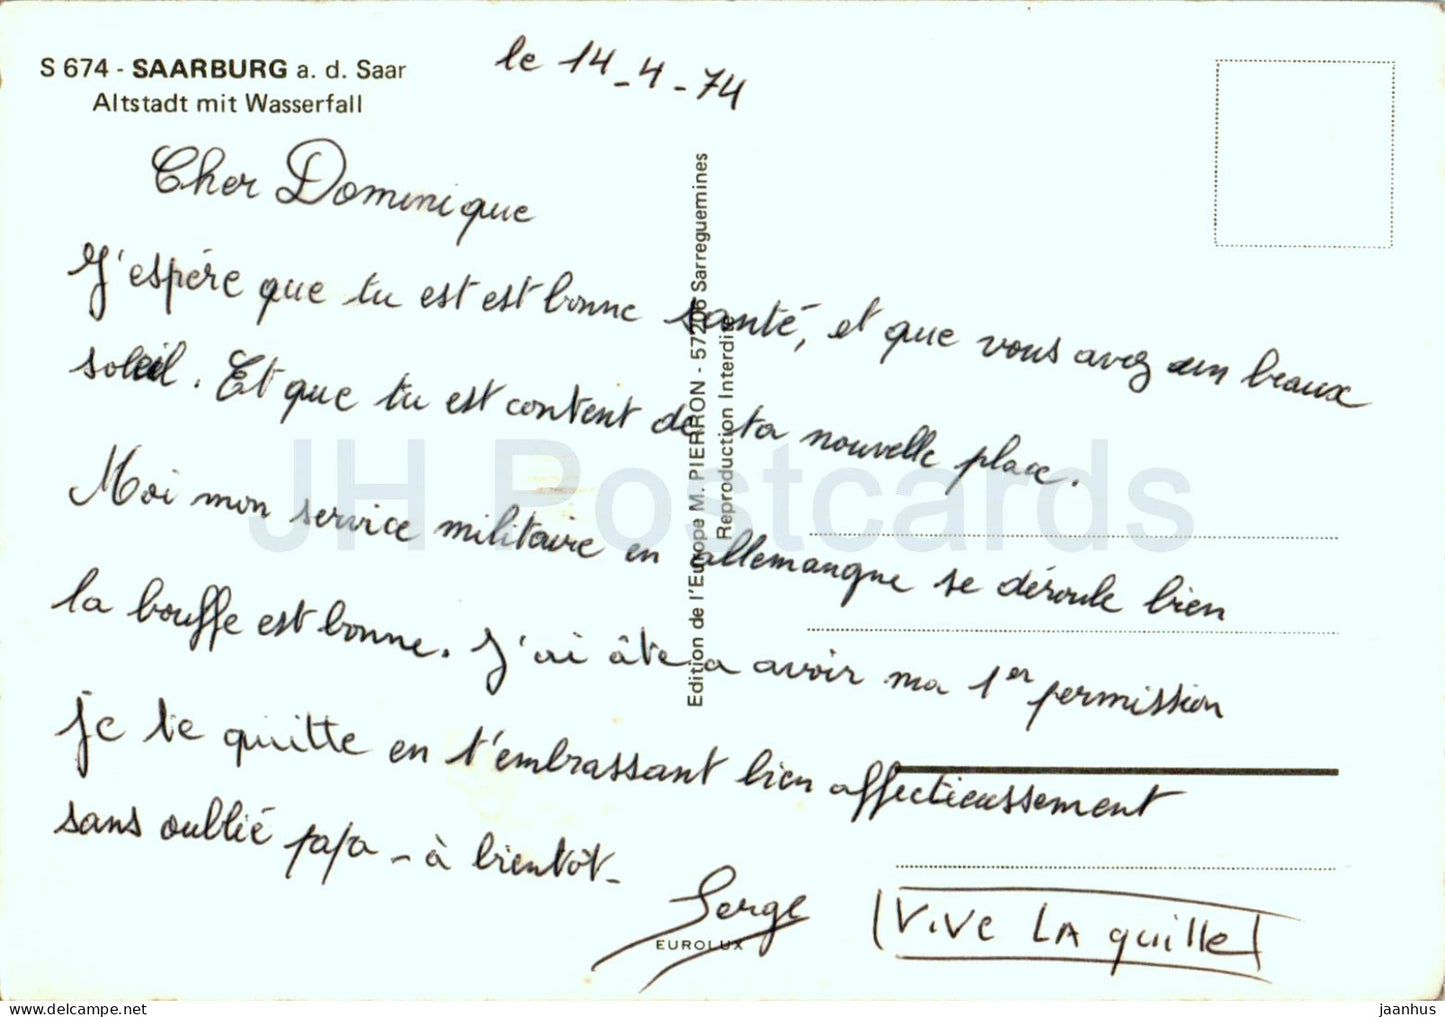 S 674 - SAARBURG a. d. Saar
Altstadt mit Wasserfall
le 14-4-74
Cher Dominique
J'espère que tu est est bonne santé, et que vous avez un beaux
soleil. Et que tu est content de ta nouvelle place.
Moi mon service militaire en allemangne se déroule bien
la bouffe est bonne. J'ai âte a avoir ma 1er permission
je te quitte en t'embrassant bien affectieussement
sans oublié papa - à bientôt -
Serge
VIVE LA quille
Edition de l'Europe M. PIERRON - 57206 Sarreguemines
Reproduction Interdite
EUROLUX
JH Postcards
jaanhus